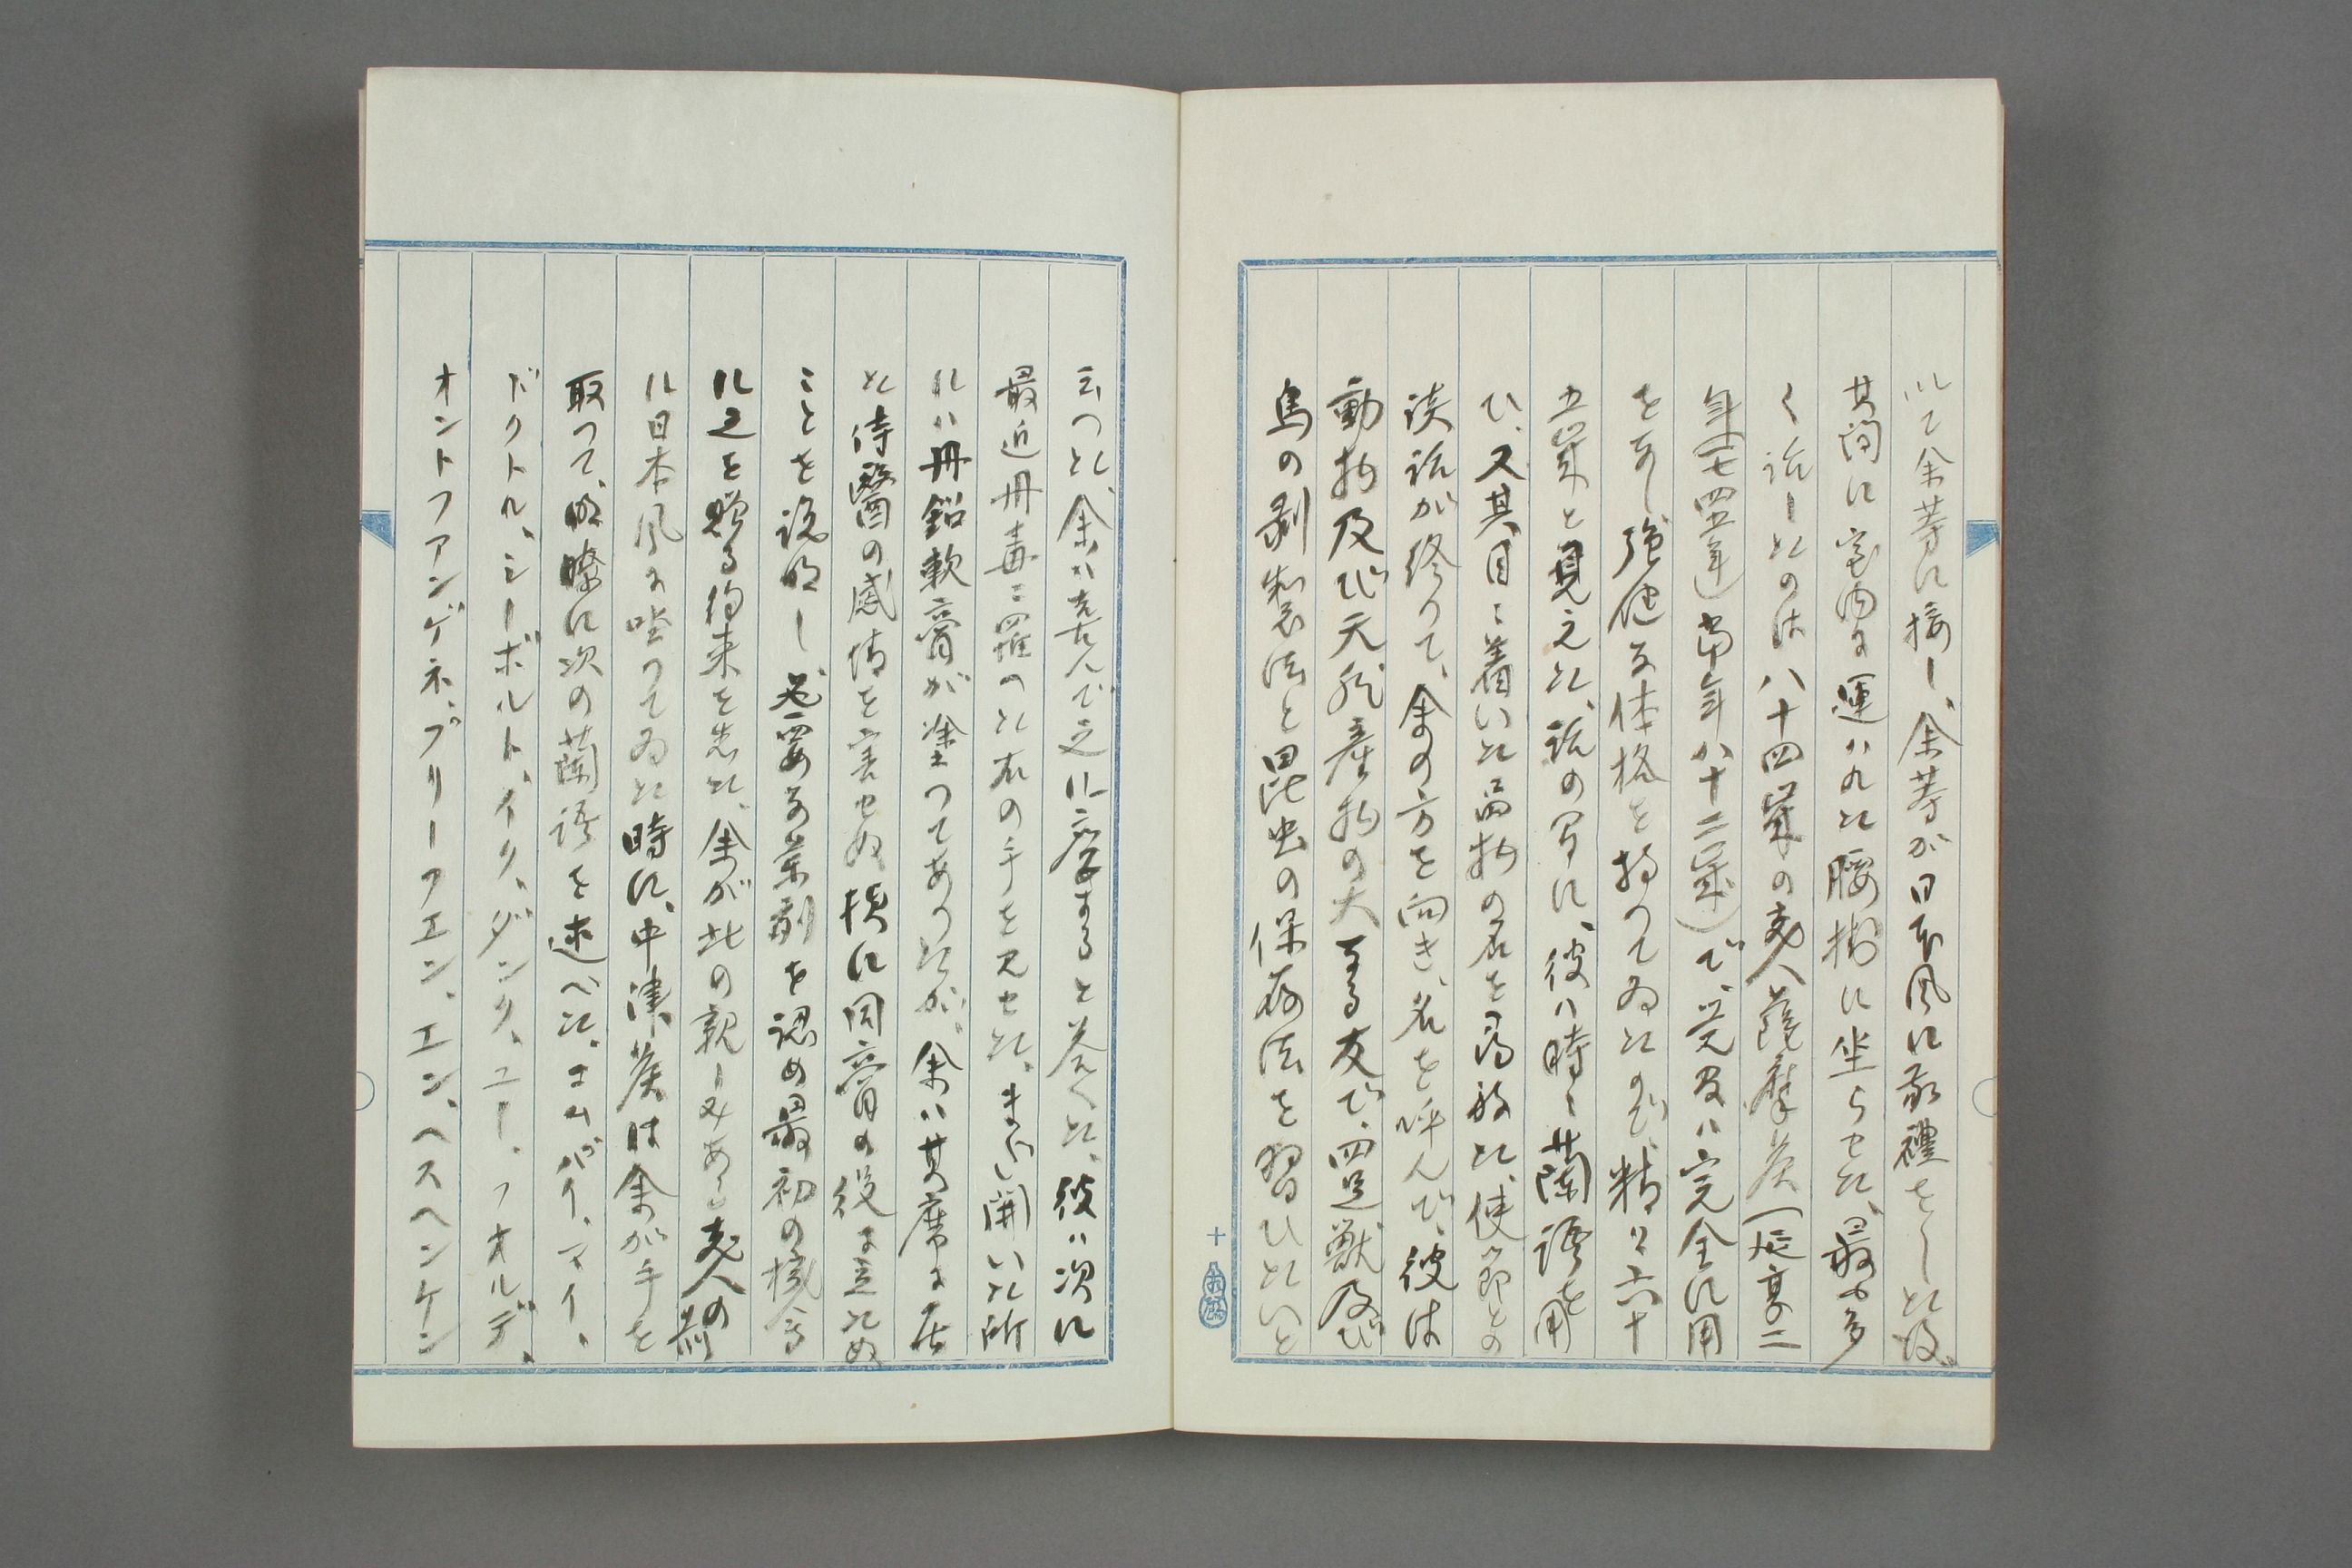 以て余等に接し、余等が日本風に敬禮をした後、
其間に室内に運ハれた腰掛に坐らせた、最も多
く話したのは八十四歳の老人薩摩侯(延享二
年(一七四五年)当年八十二歳)で、覚及ハ完全に用
をなし、強健な体格を持つてゐたので、精々六十
五歳と見えた、話の間に、彼ハ時々蘭語を用
ひ、又其目に着いた品物の名を尋ねた、使節との
談話が終つて、余の方を向き、名を呼んで、彼は
動物及び天然産物の大なる友で、四足獣及び
鳥の剥製法と昆虫の保存法を習ひたいと
云つた、余ハ喜んで之に應ずると答へた、彼ハ次に
最近丹毒に罹つた右の手を見せた、まだ開いた所
にハ丹鉛軟膏が塗つてあつたが、余ハ其席に在
た侍醫の感情を害せぬ様に同膏の役に立たぬ
ことを説明し、必要な薬剤を認め最初の機会
に之を贈る約束を為た、余が此の親しみある老人の前
に日本風に坐つてゐた時に、中津侯は余が手を
取つて、明瞭に次の蘭語を述べた、コムバイ、マイ、
ドクトル、シーボルト、イク、ダンク、ユー、フオルデ、
オントフアンゲネ、ブリーフエン、エン、ヘスヘンケン
十